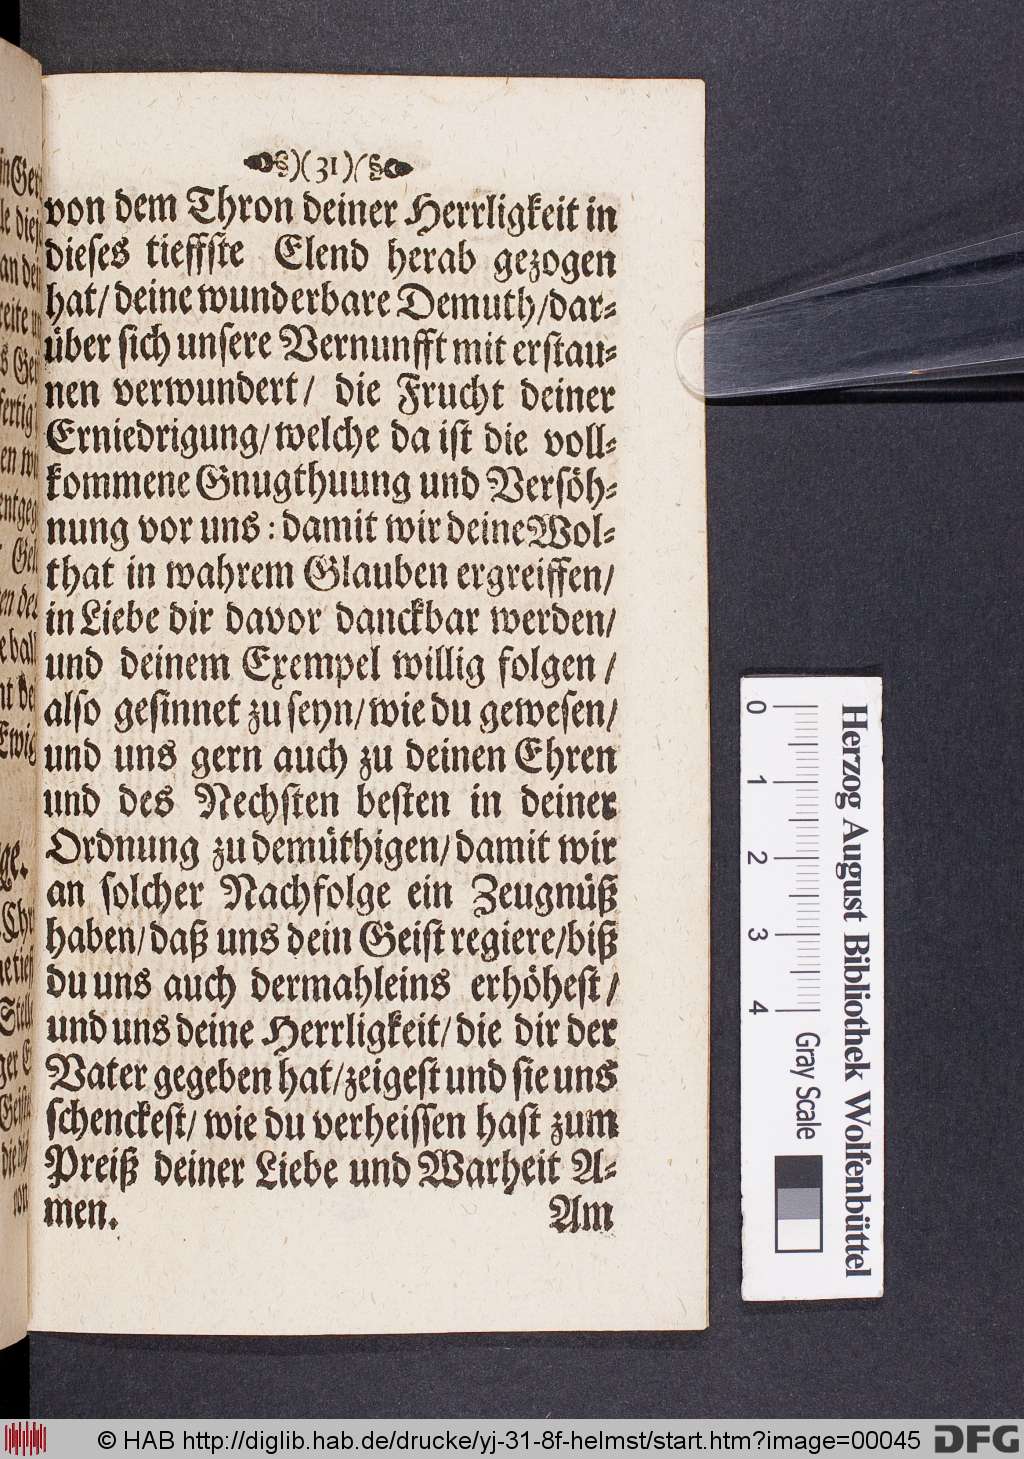 )(31)(
von dem Thron deiner Herrligkeit in
dieses tieffste Elend herab gezogen
hat/ deine wunderbare Demuth/dar-
über sich unsere Vernunfft mit erstau-
nen verwundert/ die Frucht deiner
Erniedrigung/welche da ist die voll-
kommene Gnugthuung und Versöh-
nung vor uns: damit wir deine Wol-
that in wahrem Glauben ergreiffen/
in Liebe dir davor danckbar werden/
und deinem Exempel willig folgen /
also gesinnet zu seyn/wie du gewesen/
und uns gern auch zu deinen Ehren
und des Nechsten besten in deiner
Ordnung zu demüthigen/damit wir
an solcher Nachfolge ein Zeugnüß
haben/daß uns dein Geist regiere/biß
du uns auch dermahleins erhöhest/
und uns deine Herrligkeit/die dir der
Vater gegeben hat/zeigest und sie uns
schenckest/ wie du verheissen hast zum
Preiß deiner Liebe und Warheit A-
men. Am
0 1 2 3 4
Herzog August Bibliothek Wolfenbüttel
Gray Scale
© HAB http://diglib.hab.de/drucke/yj-31-8f-helmst/start.htm?image=00045
DFG